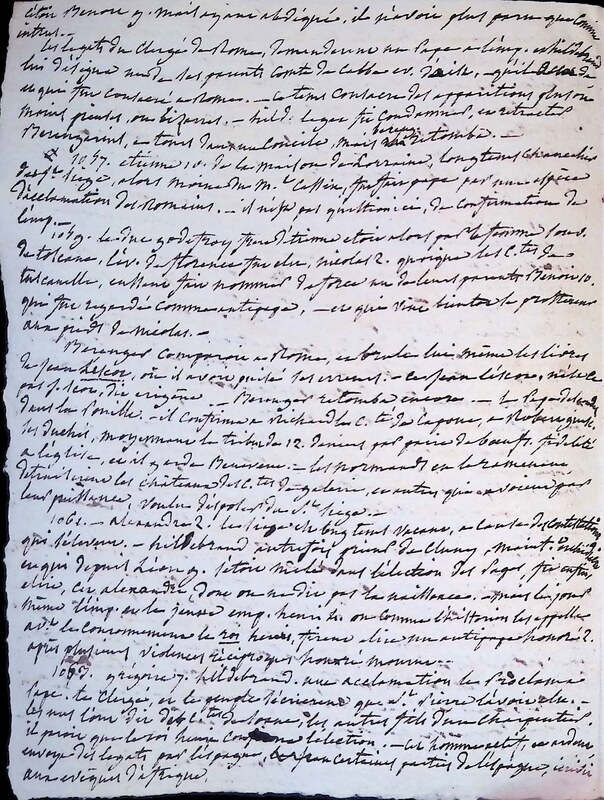 étoit Benoit 9. mais ayant abdiqué, il n'avoit plus paru que comme
intrus. —
Les légats du Clergé de Rome, demandèrent un Pape à l'emp.
lui désigne un de ses parents comte de év. d'
ce qui fut consacré à Rome. — ce tems consacre des apparitions plus ou
moins pieuses, ou bizarres. — hild. légat fit condamner, et rétracter
Berengarius, à tours dans un Concile, mais retomba. —
1057. etienne 10. de la maison de Lorraine, longtems chancelier
du St. siège, alors moine du M. t Cassin, fut fait pape par une espèce
d'acclamation des Romains. — il n'est pas question ici, de confirmation de
l'emp. —
1059. le duc godefroy frère d'etienne etoit alors par sa femme souv.
de toscane, l'év. de florence fut elu, nicolas 2. quoique les C. tes de
tuscanelle, eussent fait nommer de force un de leurs parents Benoit 10.
qui fut regardé comme antipape, — ce qui vint bientôt se prosterner
aux pieds de Nicolas. —
Berenger comparoit à Rome, et brule lui même les livres
de jean Lescot, où il avoit puisé ses erreurs. — ce jean lescot, n'est ce
pas j. scot, dit erigène — Berenger retomba encore. — le Pape
dans la Pouille. — il confirme à Richard le C. té de Capoue, à Robert
les duchés, moyennant le tribut de 12. deniers par paire de boeufs, fidélité
à l'eglise, et il garde Benevent. — les normands en le ramenant
détruisirent les châteaux des C. tes de galerie, et autres qui avoient par
leur puissance, voulu disposer du St. siège. —
1061. — alexandre 2. le siège ch longtems vacant, à cause des contestations
qui s'élevent. — hildebrand autrefois prieur de Cluny,
et qui depuis Léon 9. s'etoit mêlé dans l'élection des Papes, fit enfin
elire, cet alexandre, dont on ne dit pas la naissance. — mais les jours
même l'imp. et le jeune emp. henri 4. ou comme l'historien les appelle
avt. le couronnement le roi henri, firent elire un antipape honoré 2.
après plusieurs violences réciproques honoré mourut. —
1073. grégoire 7. hildebrand, une acclamation le Proclama
Pape. le Clergé, et le peuple s'écrièrent que St. Pierre l'avoit elu. —
les uns l'ont dit des C. tes de soane, les autres fils d'un charpentier.
il prie que le roi henri confirme l'élection. — cet homme actif, et ardent
envoye des legats par l'espagne, certaines parties de l'espagne, écrivit
aux evêques d'afrique.